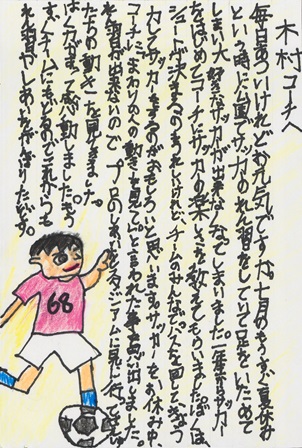 木村コーチへ
毎日あついけれどお元気ですか。七月のもうすぐ夏休み
という時に台風でサッカーのれん習をしていて足をいためて
しまい大好きなサッカーが出来なくなってしまいました。一年生からサッカー
をはじめてコーチにサッカーの楽しさを教えてもらいました。ぼくは
シュートが決まるのもうれしいけれど、チームのみんなでパスを回して、きょう
力してサッカーをするのがおもしろいと思います。サッカーをお休み中、
コーチに、まわりの人の動きを見てと言われた事を思い出しました。
れん習が出来ないので、プロのしあいをスタジアムに見に行って、せん手
たちの動きを見てきました。
はく力があって感動しました。きょう
すぐチームにもどるのでこれからも
れん習やしあいをがんばりたいです。
68